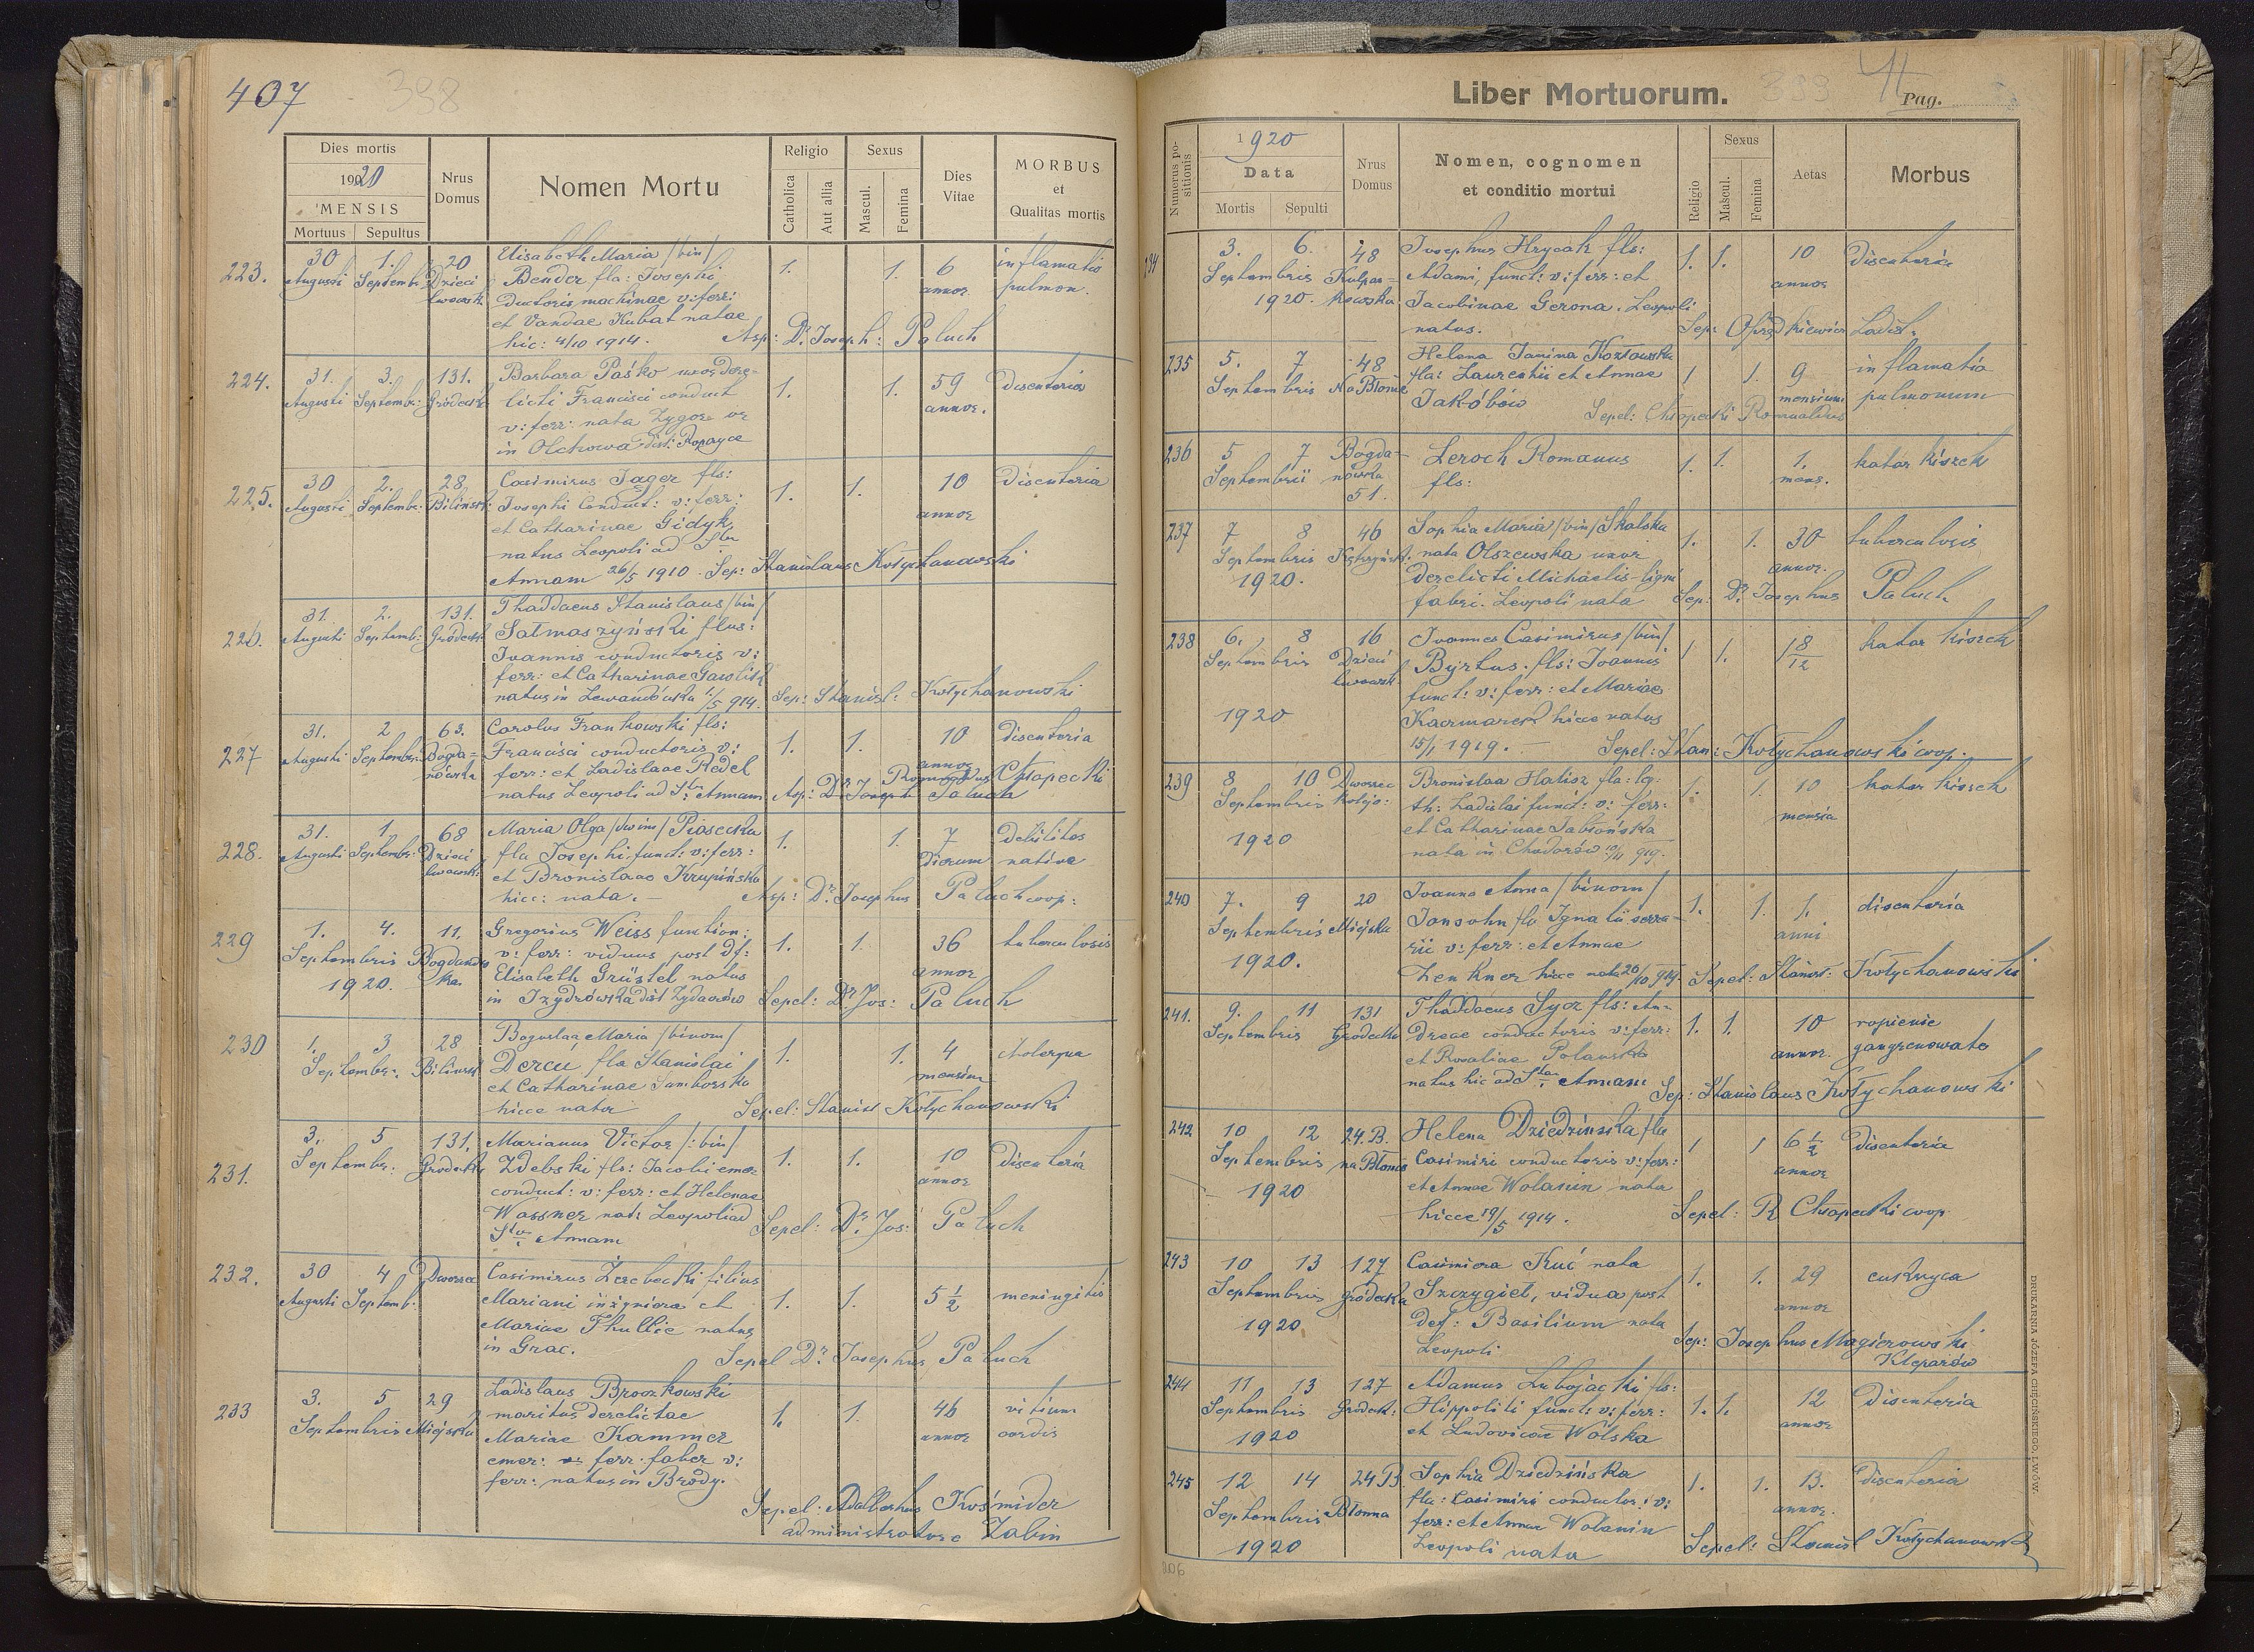 407
398
Dies mortis
1920
MENSIS
Mortuus Sepultus
Nrus Domus
Nomen Mortu
Religio
Catholica
Aut allia
Sexus
Mascul.
Femina
Dies Vitae
MORBUS
et
Qualitas mortis
223. 30 1. 20 Elisabeth Maria /bin/
Augusti Septemb: Dzieci Bender fla: Josephi 1. 1. 6 inflamatio
lwowsk. ductoris machinae v: ferr: annor. pulmon.
et Vandae Kubat natae
hic: 4/10 1914. Asp: Dr. Joseph: Paluch
224. 31. 3. 131. Barbara Paśko uxor dere-
Augusti Septemb: Gródecka licti Francisci conduct 1. 1. 59 disenteria
v: ferr: nata annor.
in Olchowa dist: Ropczyce
225. 30 2. 28 Casimirus Jager fls:
Augusti Septemb: Bilińsk: Josephi conduct: v: ferr: 1. 1. 10 disenteria
et Catharinae Gidyk annor
natus Leopoli ad Stm
Annam 26/5 1910. Sep: Stanislaus Kotychanowski
226. 31. 2. 131. Thaddaeus Stanislaus /bin/
Augusti Septemb: Gródeck. Satmaszyński flus:
Joannis conductoris v:
ferr: et Catharinae Gawlik
natus in Lewandówka 1/5 914. Sep: Stanisl: Kotychanowski
227 31. 2 63. Carolus Frankowski fls:
Augusti Septemb: Bogda= Francisci conductoris v: 1. 1. 10 disenteria
nówka ferr: et Ladislaae Redel annor Romualdus Chłapecki
natus Leopoli ad St: Annam Asp: Dr Joseph Paluch
228. 31. 1 68 Maria Olga /dwim/ Piasecka
Augusti Septemb: Dzieci fla Josephi funct: v: ferr: 1. 1. 7 debilitas
lwowski et Bronislaae Krupińska dierum nativa
hicc: nata. Asp: Dr. Josephus Paluch coop:
229 1. 4. 11. Gregorius Weiss function:
Septembris Bogdanów v: ferr: viduus post df: 1. 1. 36 tuberculosis
1920. ka. Elisabeth Grüstel natus annor
in Izydrówka dist Zydaczów Sepel: Dr Jos: Paluch
230 1. 3 28 Boguslaa Maria /binom/
Septembr. Bilińsk Dercii fla Stanislai 1. 1. 4 choleryna
et Catharinae Samborska mensium
hicce nator Sepel: Stanisl Kotychanowski
231. 3. 5 131. Marianus Victor /:bin/
Septembr. Gródecka Zdebski fls: Jacobi emer: 1. 1. 10 disenteria
conduct: v: ferr: et Helenae annor
Wassner nat: Leopoli ad
Stm Annam Sepel: Dr. Jos: Paluch
232. 30 4 Dworzec Casimirus Zerebecki filius
Augusti Septemb. Mariani inżyniera et 1. 1. 5 1/2 meningitis
Mariae Thullie natus
in Grac. Sepel Dr. Josephus Paluch
233 3. 5 29 Ladislaus Broczkowski
Septembris Miejska maritus derelictae 1. 1. 46 vitium
Mariae Kammer annor cordis
emer: ferr. faber v:
ferr: natus in Brody.
Sepel: Adalbertus Kośmider
administrator Zabin
Liber Mortuorum.
399
Pag.
Numerus positionis
1920
Data
Mortis Sepulti
Nrus Domus
Nomen, cognomen
et conditio mortui
Religio
Sexus
Mascul.
Femina
Aetas
Morbus
234 3. 6. 48 Josephus Hrycak fls:
Septembris Kulpar= Adami, funct: v: ferr: et 1. 1. 10 disenteria
1920. kowska Jacobinae Gerona. Leopoli annor
natus. Sep: Ladisl.
235 5. 7 48 Helena Janina Kozłowska
Septembris Na Błonie fla: Laurentii et Annae 1 1. 9 inflamatia
Jakóbow mensium pulmonum
Sepel: Chłapecki Romualdus
236 5 7 Bogda- Leroch Romanus
Septembrii nówka fls: 1. 1. 1. katar kiszek
51. mens.
237 7 8 46 Sophia Maria /bin/ Skalska
Septembris Kętrzyńsk. nata Olszewska uxor 1. 1. 30 tuberculosis
1920. derelicti Michaelis ligni annor.
fabri. Leopoli nata Sep: Dr. Josephus Paluch
238 6. 8 16 Joannes Casimirus /bin/
Septembris Dzieci Byrtus. fls: Joannis 1 1. 1 8/12 katar kiszek
lwowsk. funct: v: ferr: et Mariae
1920 Kaczmarek hicce natus
15/1 1919. Sepel: Stan: Kotychanowski coop.
239 8 10 Dworzec Bronislaa Halisz fla: leg:
Septembris kolejo: th: Ladislai funct: v: ferr: 1. 1. 10 katar kiszek
1920 et Catharinae Jabłońska mensia
nata in Chodorów 10/11 919.
240 7. 9 20 Joanna Anna /binom/
Septembris Miejska Jonsohn fla Ignatii serra- 1. 1. 1. disenteria
1920. rii v: ferr: et Annae anni
Zenkner hicce nata 26/10 919. Sepel: Stanisl: Kotychanowski
241. 9. 11 131 Thaddaeus Sycz fls: An-
Septembris Grodecka dreae conductoris v: ferr: 1. 1. 10 ropienie
et Rosaliae Polańska annor. gangrenowate
natus hic ad Stm Annam Sep: Stanislaus Kotychanowski
242 10 12 24.B. Helena Dziedzińska fla
Septembris na Błonie Casimiri conductoris v: ferr: 1 1 6 1/2 disenteria
1920 et Annae Wolanin nata annor
hicce 19/5 1914. Sepel: R Chłapecki coop.
243 10 13 127 Casimira Kuć nata
Septembris gródecka Szczygieł, vidua post 1. 1. 29 cukrzyca
1920 def: Basilium nata annor
Leopoli Sep: Josephus Magierowski
Kleparów
244 11 13 127 Adamus Lubojacki fls:
Septembris Gródeck: Hippoliti funct: v: ferr: 1. 1. 12 disenteria
1920 et Ludovicae Wolska annor
245 12 14 24 B Sophia Dziedzińska
Septembris Błonna fla: Casimiri conductor: v: 1. 1. 13. disenteria
1920 ferr: et Annae Wolanin annor.
Leopoli nata Sepel: Stanisl Kotychanowski
DRUKARNIA JÓZEFA CHĘCIŃSKIEGO, LWÓW.